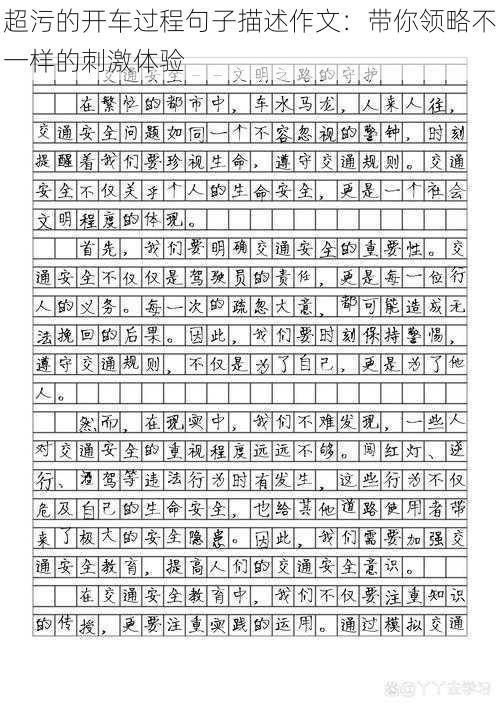 超污的开车过程句子描述作文：带你领略不
一样的刺激体验
交通安全--文明之路的守护
在繁忙的都市中，车水马龙，人来人往，
交通安全问题如同一个不容忽视的警钟，时刻
提醒着我们要珍视生命，遵守交通规则。交通
安全不仅关乎个人的生命安全，更是一个社会
文明程度的体现。
首先，我们要明确交通安全的重要性。交
通安全不仅仅是驾驶员的责任，更是每一位行
人的义务。每一次的疏忽大意，都可能造成无
法挽回的后果。因此，我们要时刻保持警惕，
遵守交通规则，不仅是为了自己，更是为了他
人。
然而，在现实中，我们不难发现，一些人
对交通安全的重视程度远远不够。闯红灯、逆
行、酒驾等违法行为时有发生，这些行为不仅
危及自己的生命安全，也给其他道路使用者带
来了极大的安全隐患。因此，我们需要加强交
通安全教育，提高人们的交通安全意识。
在交通安全教育中，我们不仅要注重知识
的传授，更要注重实践的运用。通过模拟交通
@丫丫去学习